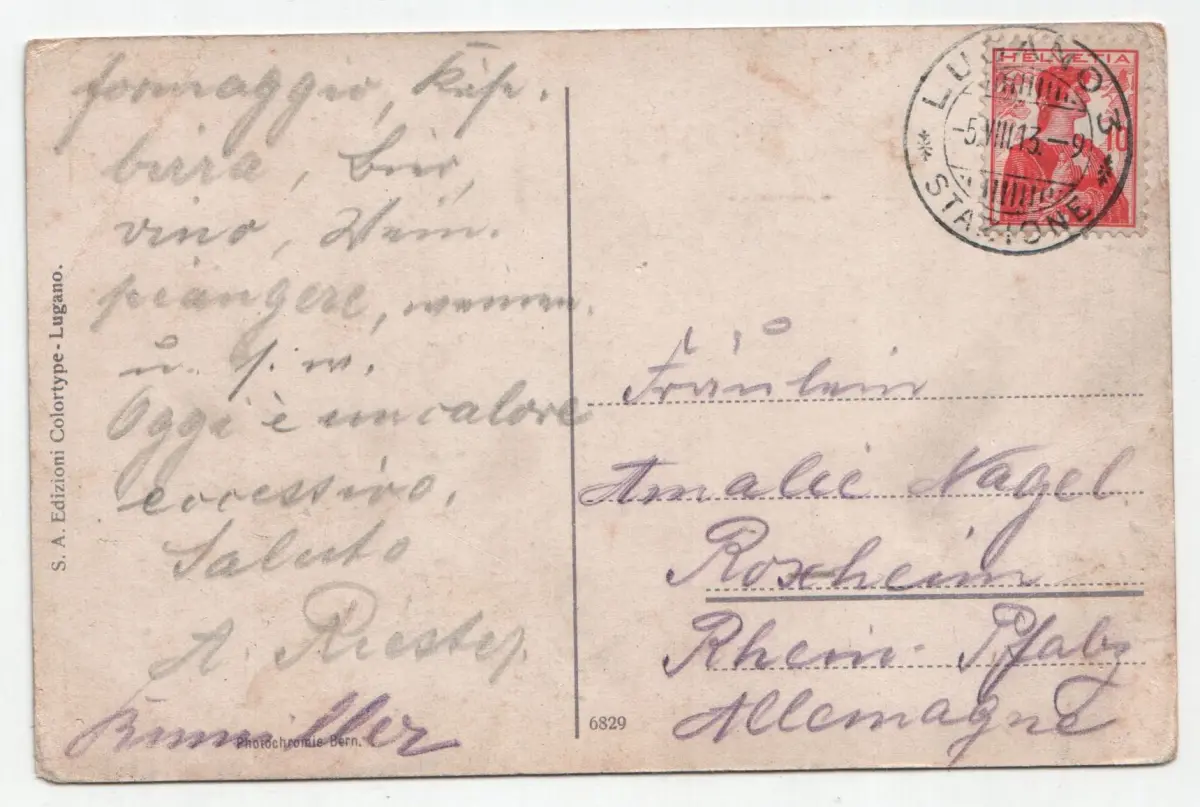 formaggio, Käse.
birra, Bier,
vino, Wein.
piangere, weinen.
u. s. w.
Oggi è un calore
eccessivo.
Saluto
A. Riester
S. A. Edizioni Colortype - Lugano.
Photochromie Bern.
6829
HELVETIA
10
LUGANO 3
STAZIONE
Fräulein
Amalie Nagel
Roxheim
Rhein. Pfalz
Allemagne